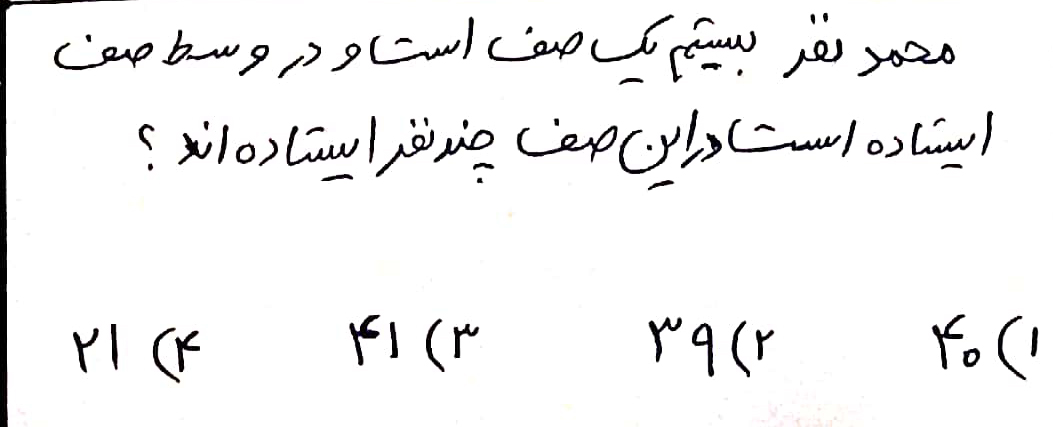 محمد نفر بیستم یک صف است و در وسط صف
ایستاده است در این صف چند نفر ایستاده اند ؟
۱) ۴۰ ۲) ۳۹ ۳) ۴۱ ۴) ۲۱